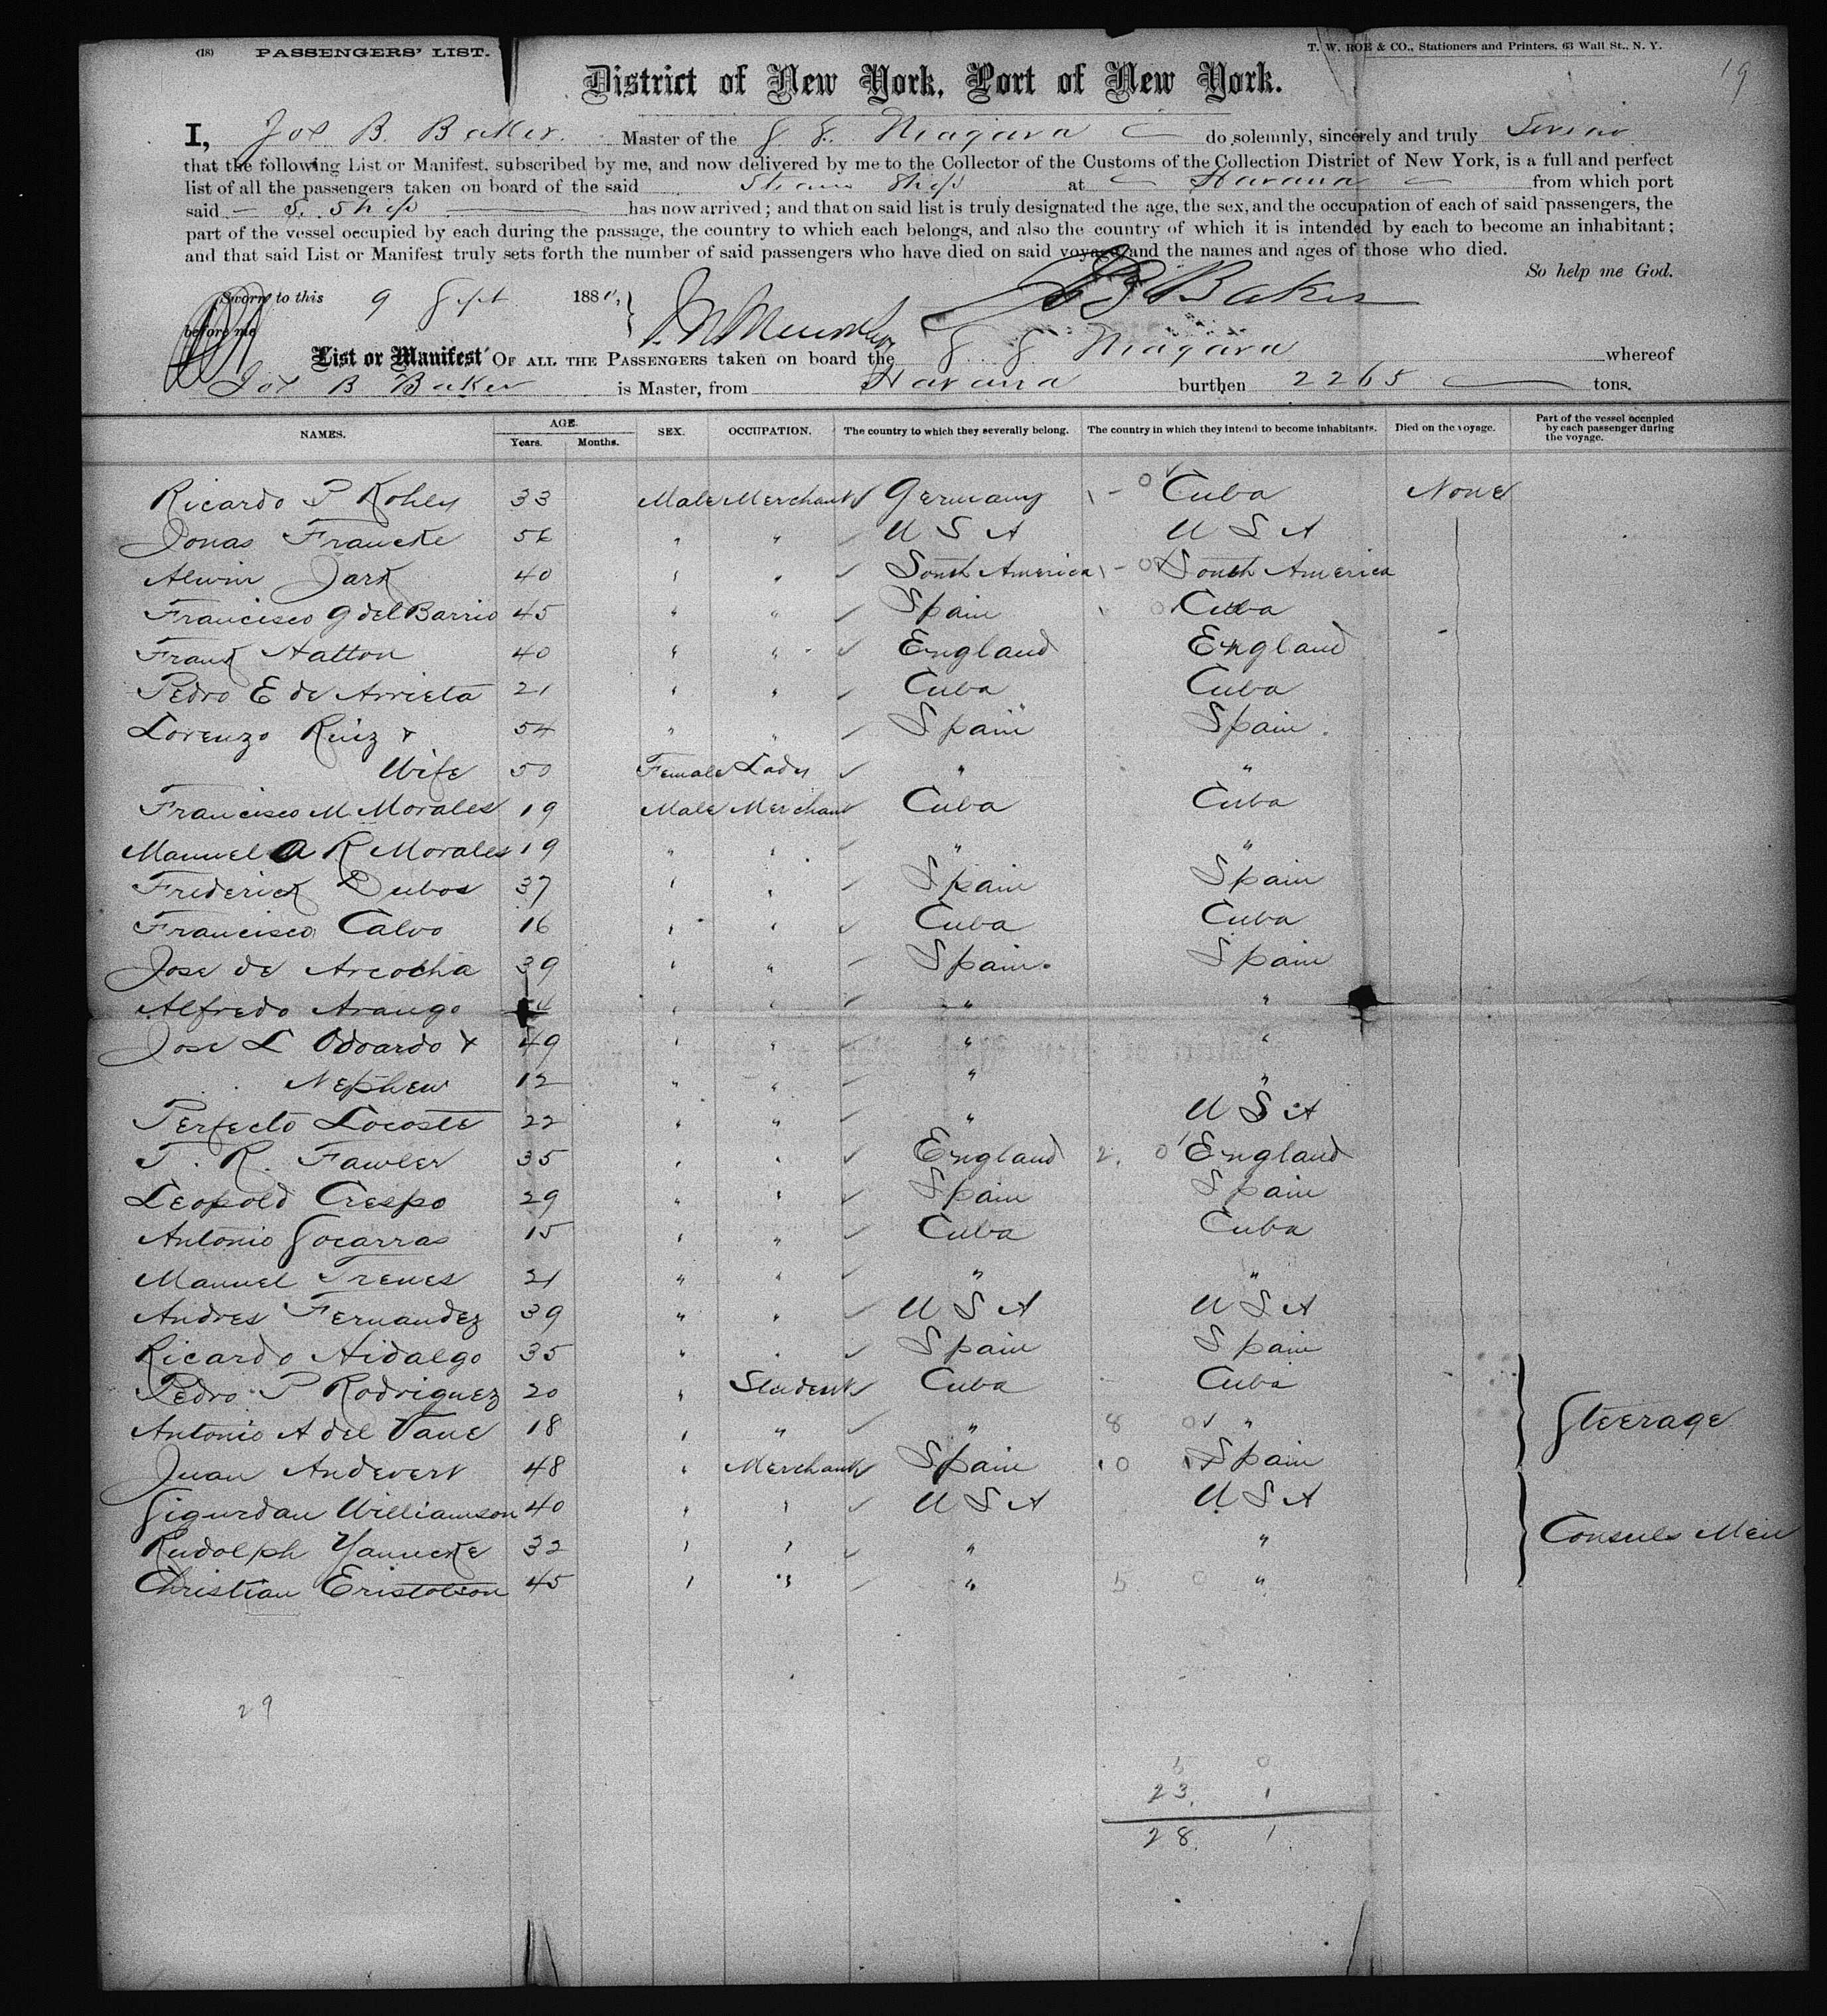 (18) PASSENGERS' LIST.
T. W. ROE & CO., Stationers and Printers, 63 Wall St., N. Y.
19
District of New York, Port of New York.
I, Jos B. Baker. Master of the S. S. Niagara do solemnly, sincerely and truly Swear
that the following List or Manifest, subscribed by me, and now delivered by me to the Collector of the Customs of the Collection District of New York, is a full and perfect
list of all the passengers taken on board of the said Steam Ship at Havana from which port
said S. Ship has now arrived; and that on said list is truly designated the age, the sex, and the occupation of each of said passengers, the
part of the vessel occupied by each during the passage, the country to which each belongs, and also the country of which it is intended by each to become an inhabitant;
and that said List or Manifest truly sets forth the number of said passengers who have died on said voyage, and the names and ages of those who died.
So help me God.
Sworn to this 9 Sept 188
before me
J B Baker
List or Manifest OF ALL THE PASSENGERS taken on board the S. S. Niagara whereof
Jos B Baker is Master, from Havana burthen 2265 tons.
NAMES. AGE. Years. Months. SEX. OCCUPATION. The country to which they severally belong. The country in which they intend to become inhabitants. Died on the voyage. Part of the vessel occupied by each passenger during the voyage.
Ricardo P Kohly 33 Male Merchant Germany Cuba None
Jonas Francke 56 " " U S A U S A
Alwin Jark 40 " " South America South America
Francisco G del Barrio 45 " " Spain Cuba
Frank Hatton 40 " " England England
Pedro E de Arrieta 21 " " Cuba Cuba
Lorenzo Ruiz & 54 " " Spain Spain
Wife 50 Female Lady " "
Francisco M Morales 19 Male Merchant Cuba Cuba
Manuel A R Morales 19 " " " "
Frederick Dubos 37 " " Spain Spain
Francisco Calvo 16 " " Cuba Cuba
Jose de Arcocha 39 " " Spain Spain
Alfredo Arango " " " "
Jose L Odoardo & 49 " " " "
Nephew 12 " " " "
Perfecto Locoste 22 " " " U S A
T. R. Fawler 35 " " England 2. 0 England
Leopold Crespo 29 " " Spain Spain
Antonio Socarras 15 " " Cuba Cuba
Manuel Trenes 21 " " " "
Andres Fernandez 39 " " U S A U S A
Ricardo Hidalgo 35 " " Spain Spain
Pedro P Rodriguez 20 " Student Cuba Cuba
Antonio A del Vane 18 " " " 8 0 " Steerage
Juan Andevert 48 " Merchant Spain 10 Spain
Sigurdan Williamson 40 " " U S A U S A
Rudolph Yanncke 32 " " " " Consuls Men
Christian Eristolson 45 " " " 5 0 "
29
5 0
23. 1
28. 1